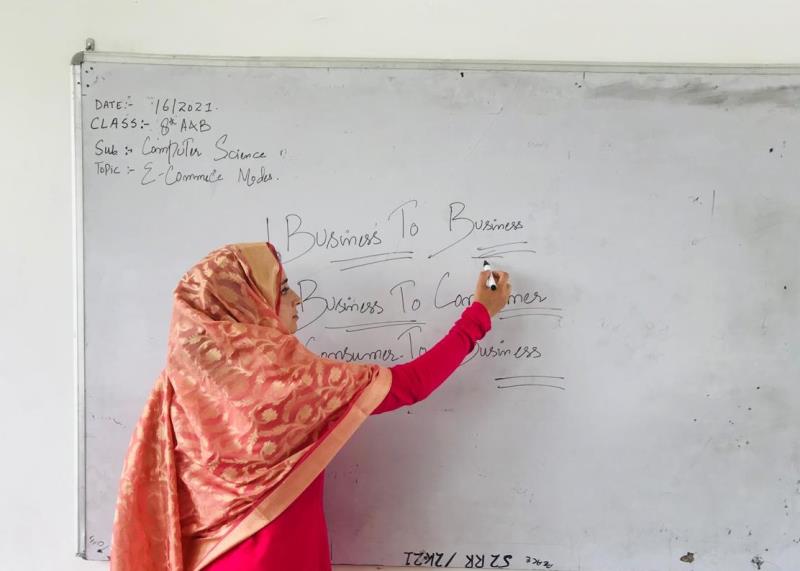 DATE:- /6/2021.
CLASS:- 8th A&B
Sub:- Computer Science
Topic:- E-Commerce Modes.
Business To Business
Business To
Consumer To Business
PEACE S2RK/2K21